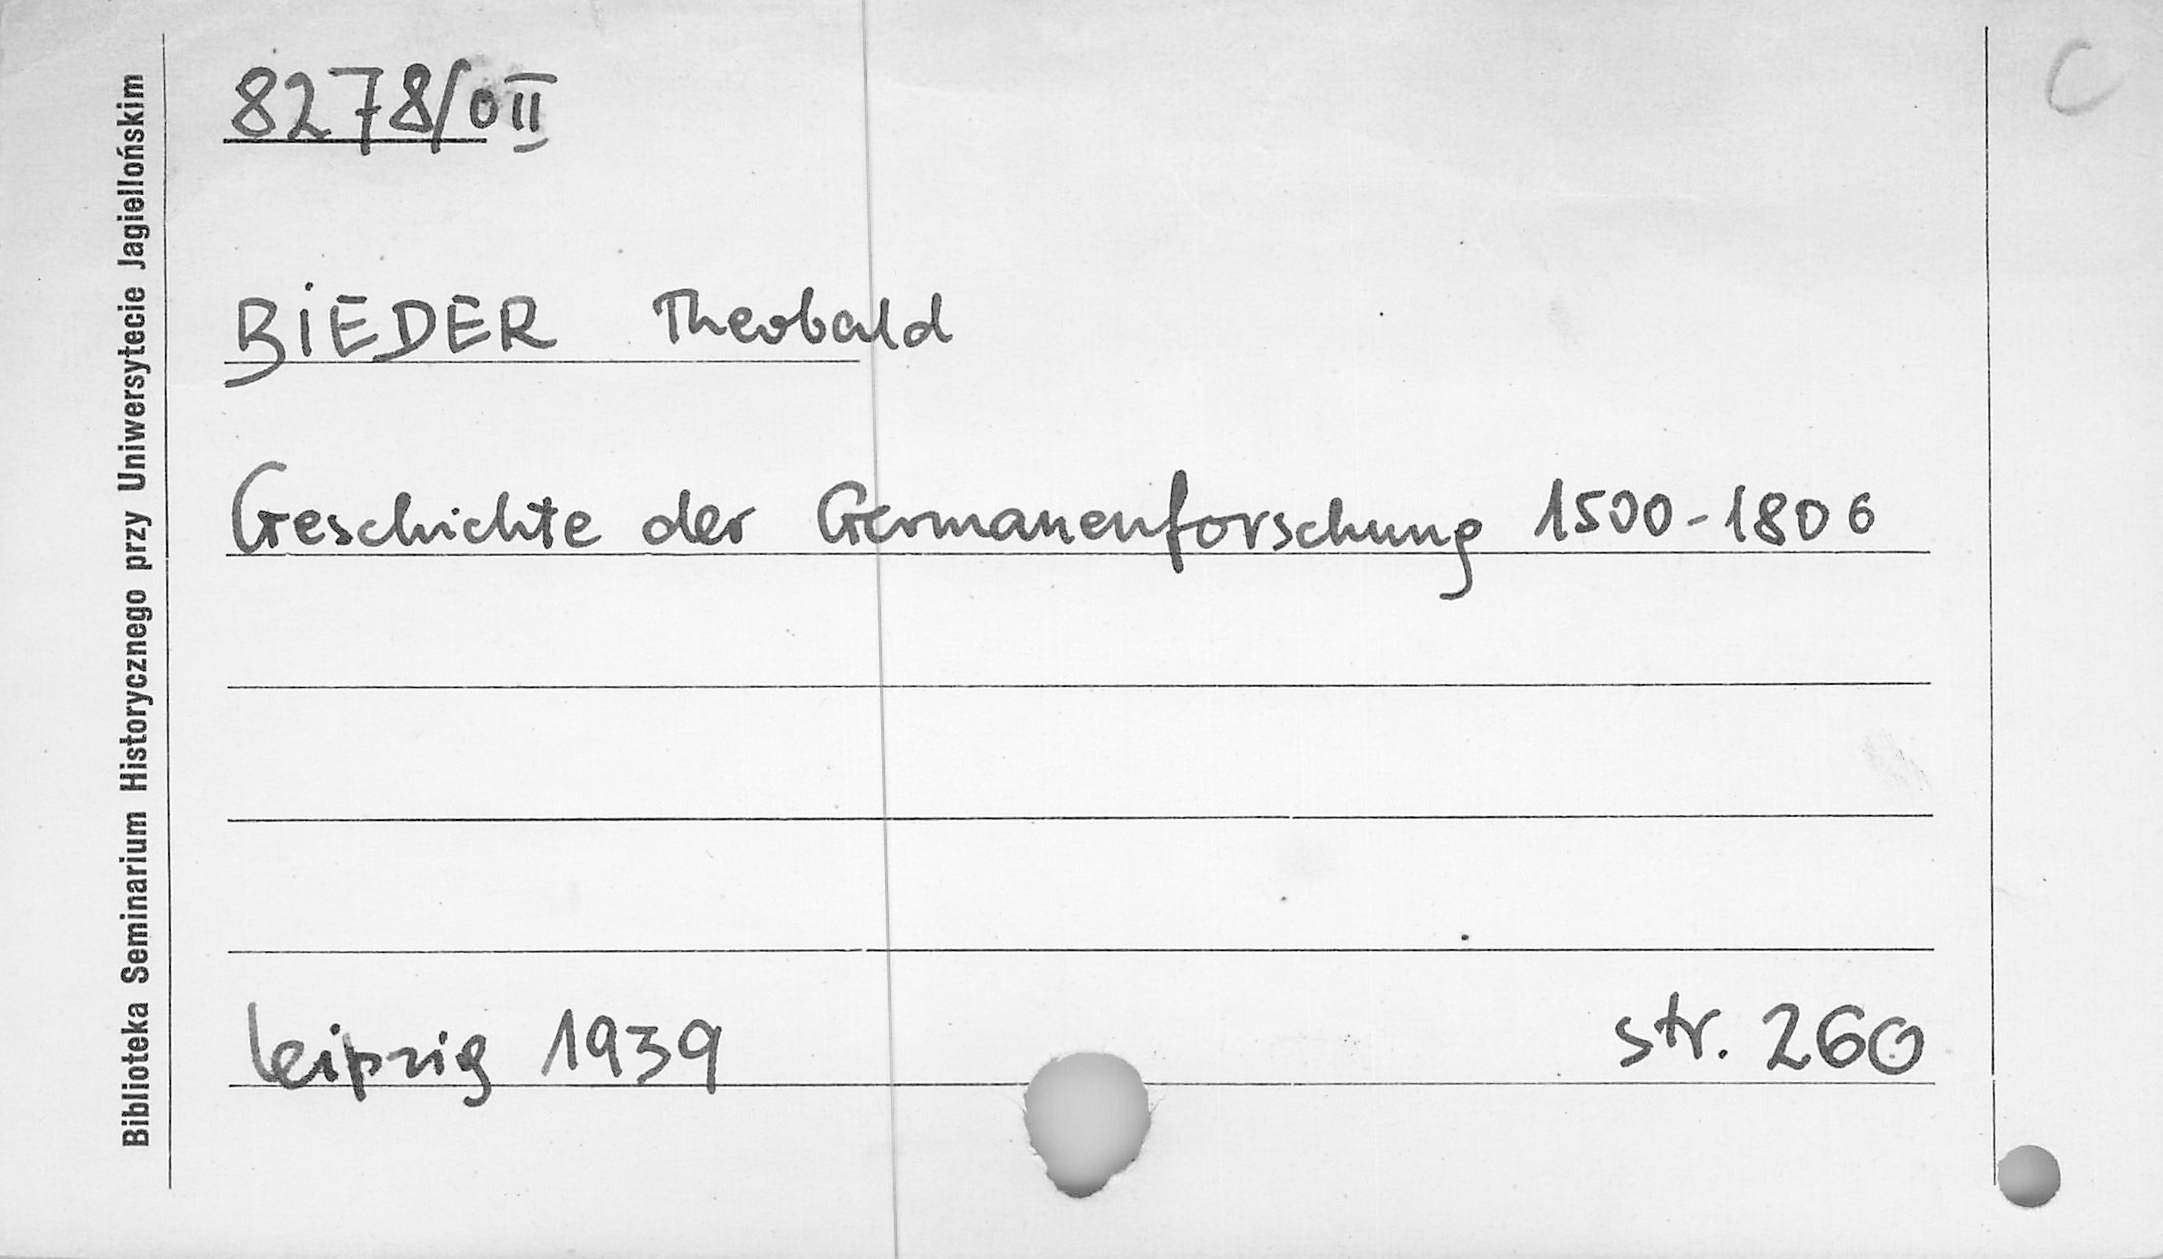 8278/0II
C
BIEDER Theobald
Geschichte der Germanenforschung 1500-1806
Leipzig 1939 str. 260
Biblioteka Seminarium Historycznego przy Uniwersytecie Jagiellońskim